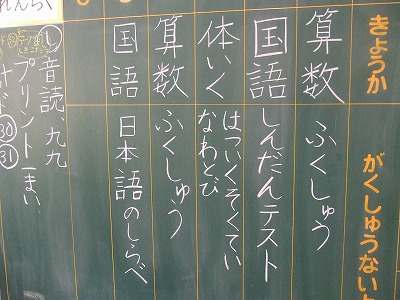 きょうか がくしゅうない
算数 ふくしゅう
国語 しんだんテスト
体いく はついくそくてい
なわとび
算数、ふくしゅう
国語 日本語のしらべ
れんらく
し 音読、九九
プリント一まい
計ド㉚
㉛